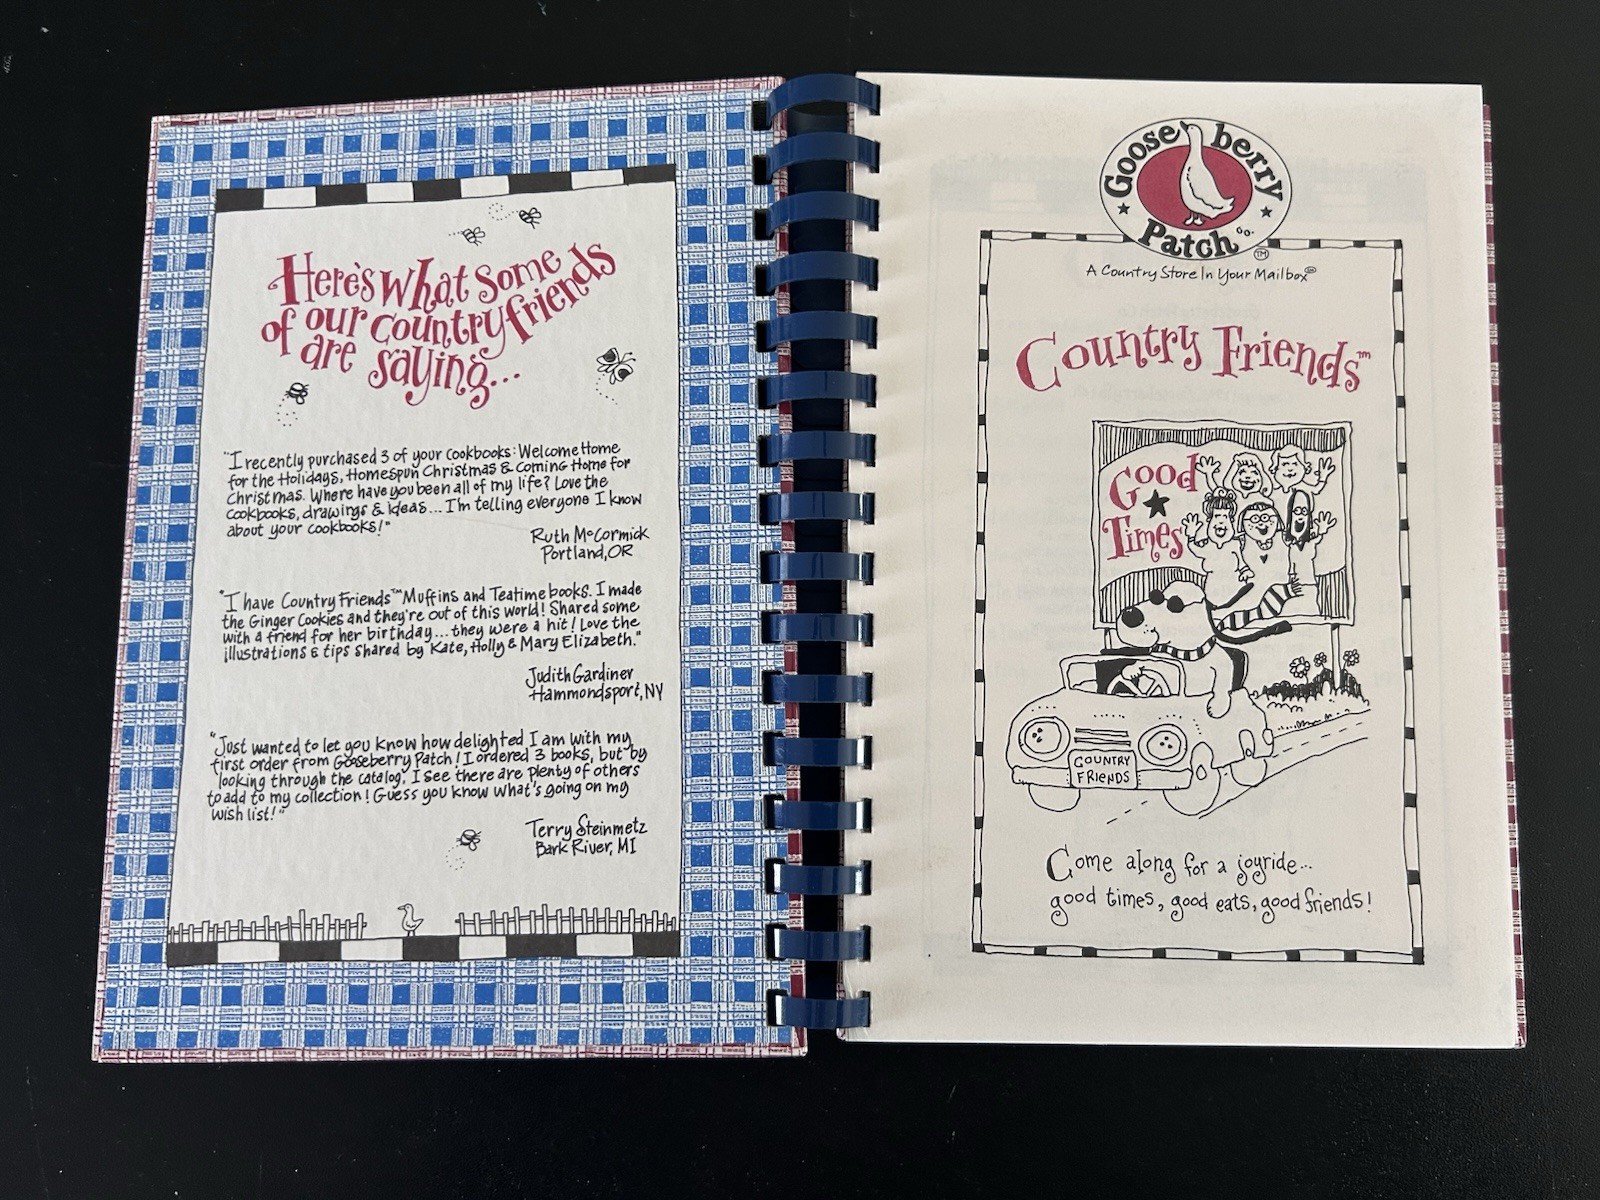 Here's What Some
of our Country friends
are saying...
"I recently purchased 3 of your cookbooks: Welcome Home
for the Holidays, Homespun Christmas & Coming Home for
Christmas. Where have you been all of my life? Love the
cookbooks, drawings & ideas... I'm telling everyone I know
about your cookbooks!"
Ruth McCormick
Portland, OR
"I have Country Friends™ Muffins and Teatime books. I made
the Ginger Cookies and they're out of this world! Shared some
with a friend for her birthday... they were a hit! Love the
illustrations & tips shared by Kate, Holly & Mary Elizabeth."
Judith Gardiner
Hammondsport, NY
"Just wanted to let you know how delighted I am with my
first order from Gooseberry Patch! I ordered 3 books, but by
looking through the catalog, I see there are plenty of others
to add to my collection! Guess you know what's going on my
wish list!"
Terry Steinmetz
Bark River, MI
Gooseberry
Patch Co. ™
A Country Store In Your Mailbox℠
Country Friends™
Good
Times
COUNTRY
FRIENDS
Come along for a joyride...
good times, good eats, good friends!